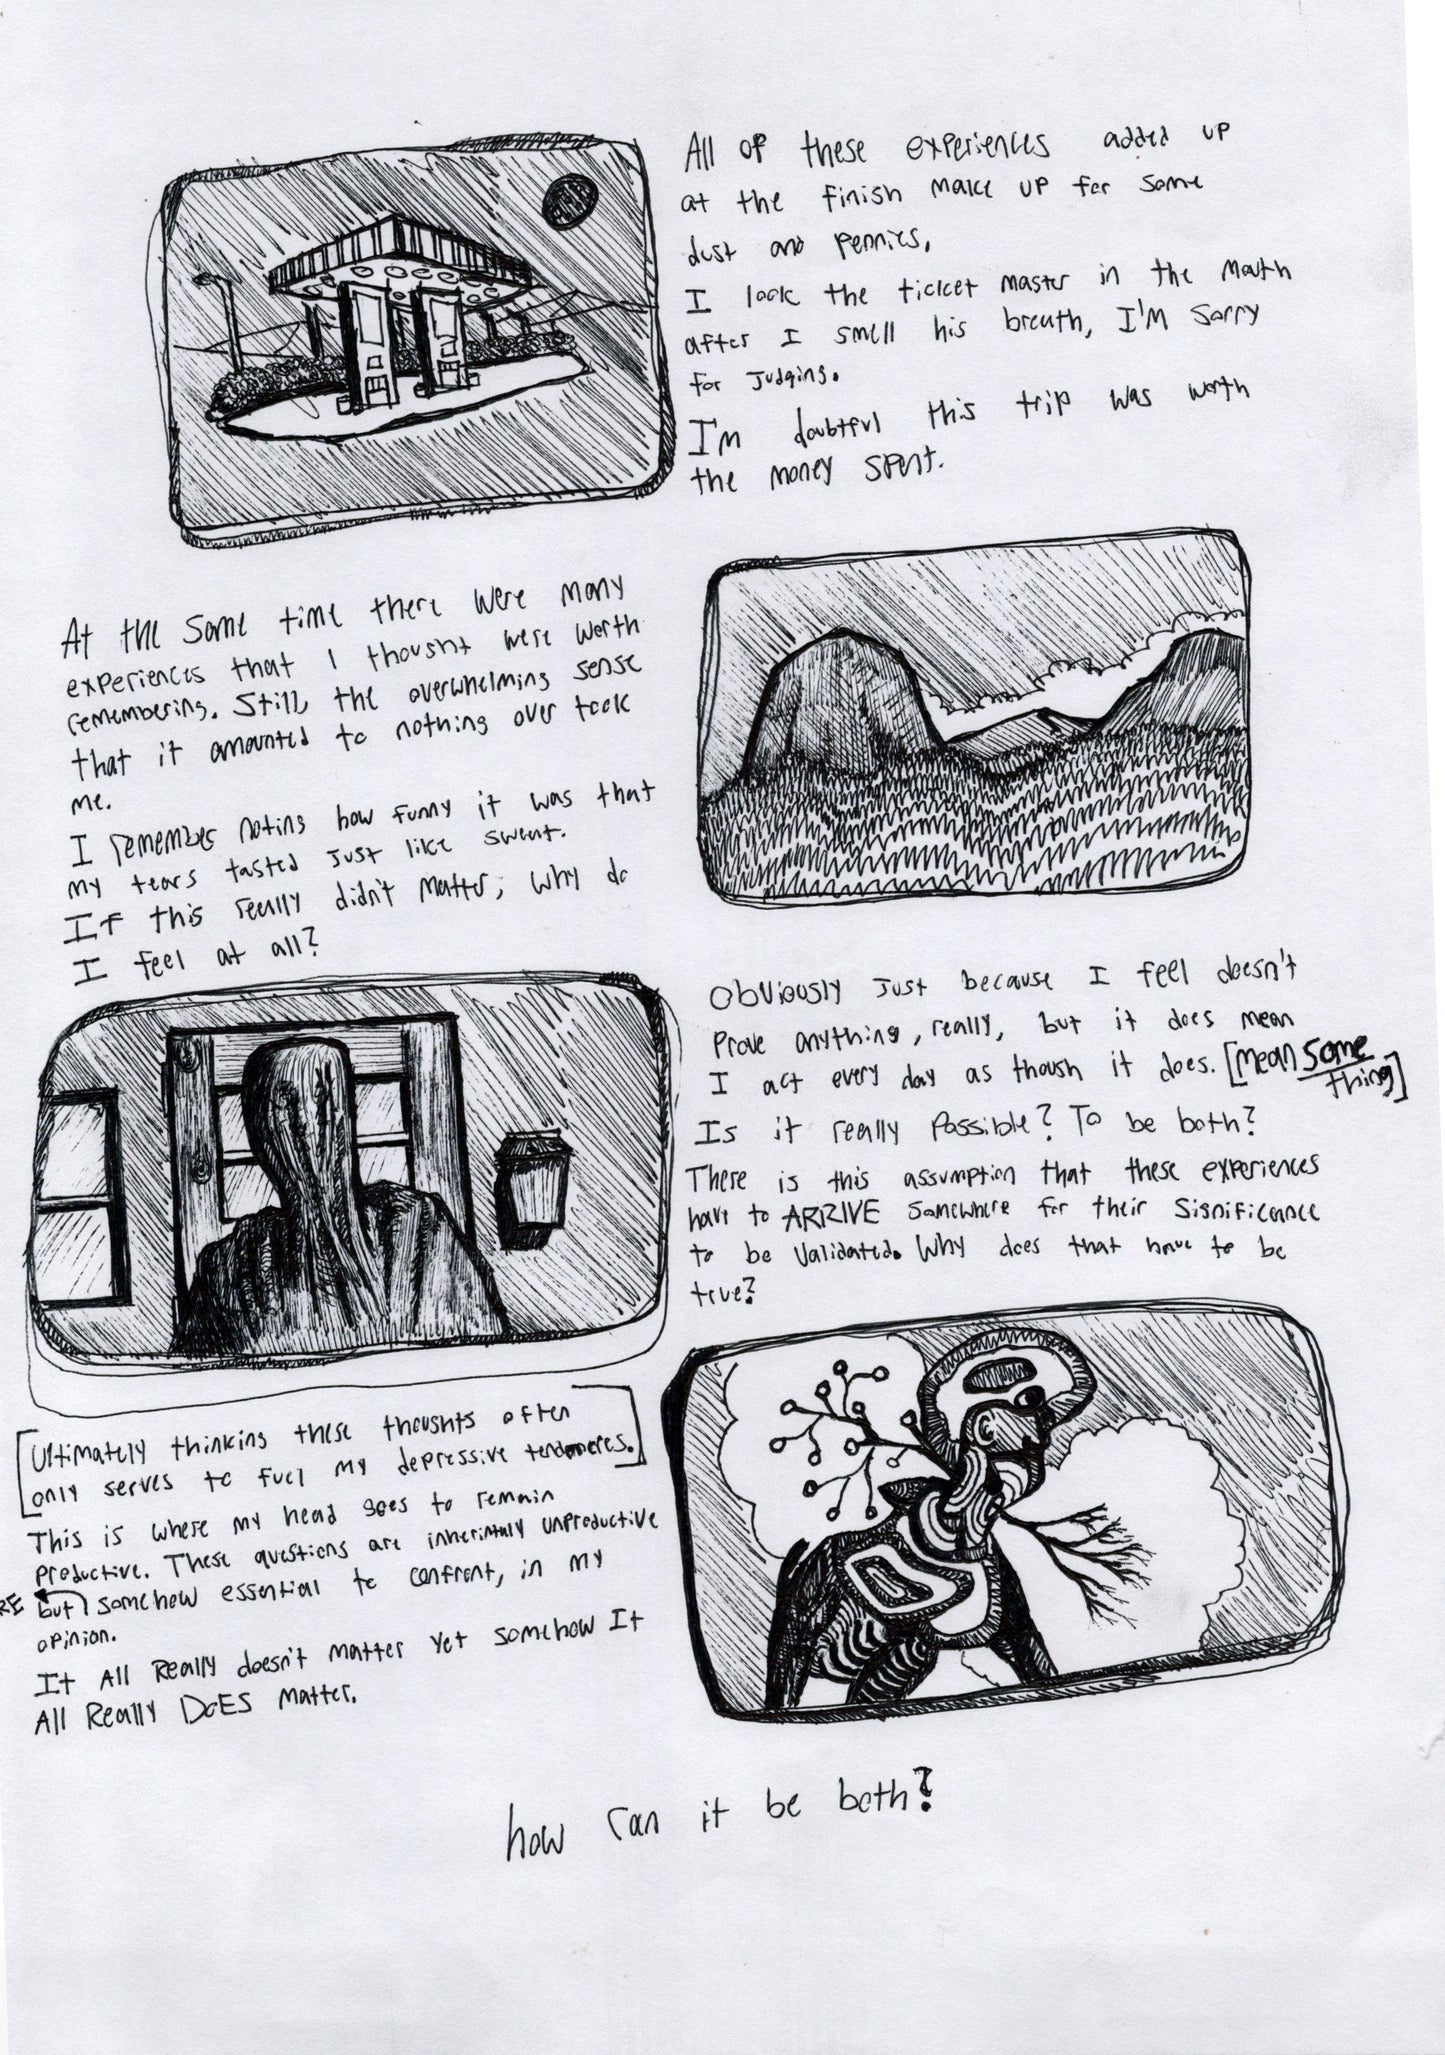 All of these experiences added up
at the finish make up for some
dust and pennies,
I look the ticket master in the mouth
after I smell his breath, I'm sorry
for judging.
I'm doubtful this trip was worth
the money spent.
At the same time there were many
experiences that I thought were worth
remembering. Still, the overwhelming sense
that it amounted to nothing over took
me.
I remember noting how funny it was that
my tears tasted just like sweat.
If this really didn't matter, why do
I feel at all?
Obviously just because I feel doesn't
prove anything, really, but it does mean
I act every day as though it does. [mean some
thing]
Is it really possible? To be both?
There is this assumption that these experiences
have to ARRIVE somewhere for their significance
to be validated. Why does that have to be
true?
[Ultimately thinking these thoughts often
only serves to fuel my depressive]
This is where my head goes to remain
productive. These questions are unproductive
but somehow essential to confront, in my
opinion.
It All Really doesn't matter yet somehow It
All Really DoES matter.
how can it be both?